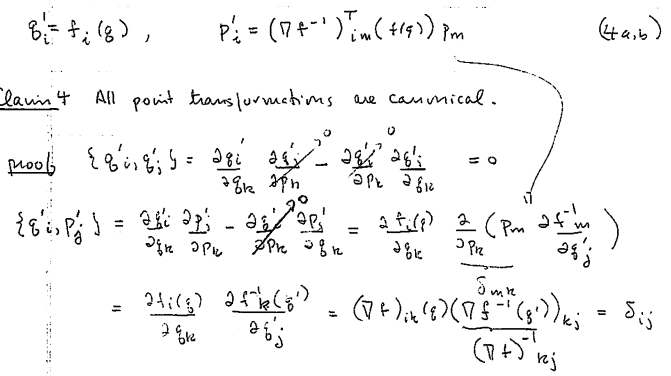 q'_i = f_i(q) , p'_i = (∇f^{-1})^T_{im} (f(q)) p_m (4a,b)
Claim 4 All point transformations are canonical.
proof {q'_i, q'_j} = ∂q'_i/∂q_k ∂q'_j/∂p_k → 0 − ∂q'_i/∂p_k → 0 ∂q'_j/∂q_k = 0
{q'_i, p'_j} = ∂q'_i/∂q_k ∂p'_j/∂p_k − ∂q'_i/∂p_k → 0 ∂p'_j/∂q_k = ∂f_i(q)/∂q_k ∂/∂p_k (p_m ∂f^{-1}_m/∂q'_j)
δ_{mk}
= ∂f_i(q)/∂q_k ∂f^{-1}_k(q')/∂q'_j = (∇f)_{ik}(q) (∇f^{-1}(q'))_{kj} = δ_{ij}
(∇f)^{-1}_{kj}